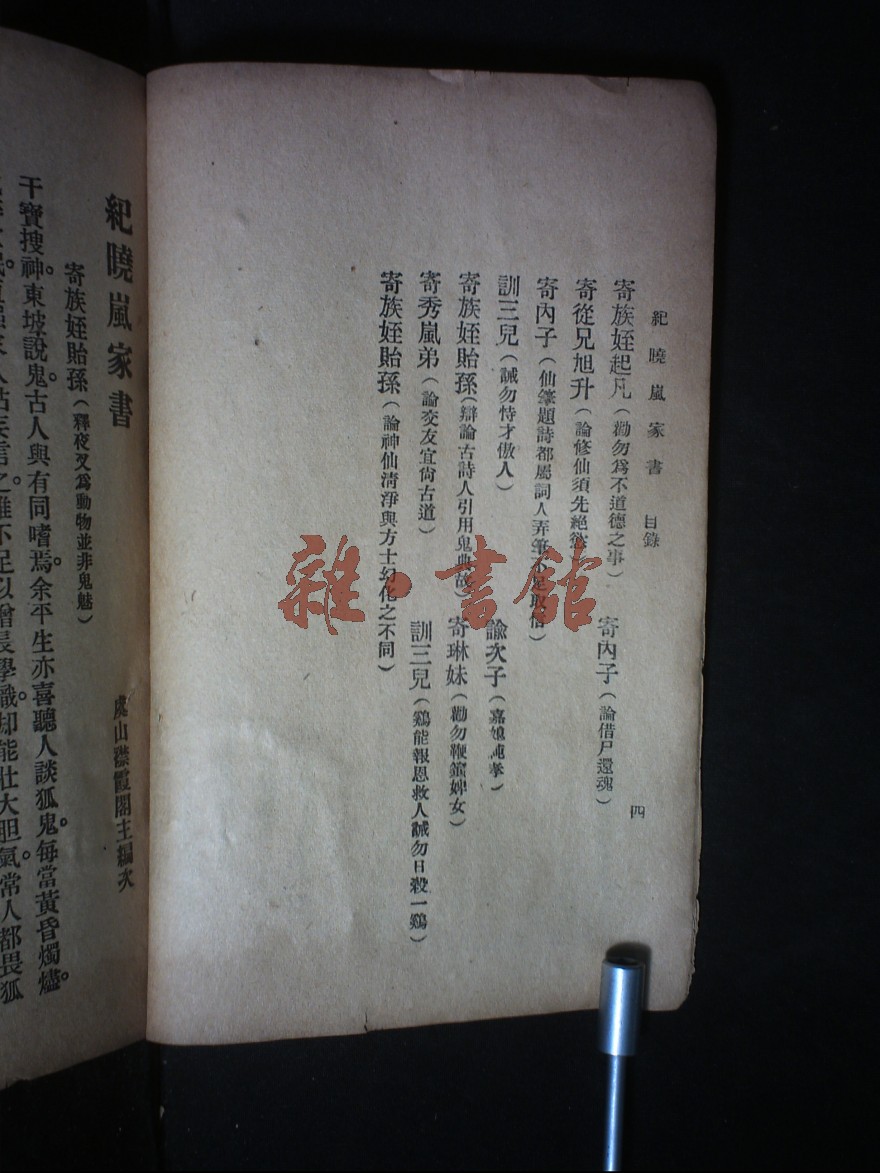 紀曉嵐家書 目錄
四
寄族姪起凡(勸勿爲不道德之事) 寄內子(論借尸還魂)
寄從兄旭升(論修仙須先絕慾)
寄內子(仙筆題詩都屬詞人弄筆不足取信)
訓三兒(誡勿恃才傲人) 諭次子(嘉媳純孝)
寄族姪貽孫(辯論古詩人引用鬼典故) 寄琳妹(勸勿鞭簉婢女)
寄秀嵐弟(論交友宜尙古道) 訓三兒(鷄能報恩救人誡勿日殺一鷄)
寄族姪貽孫(論神仙淸淨與方士幻化之不同)
雜·書館
紀曉嵐家書
虞山襟霞閣主編次
寄族姪貽孫(釋夜叉爲動物並非鬼魅)
干寶搜神。東坡說鬼。古人與有同嗜焉。余平生亦喜聽人談狐鬼。每當黃昏燭燼。
之雖不足以增長學識。却能壯大胆氣。常人都畏狐